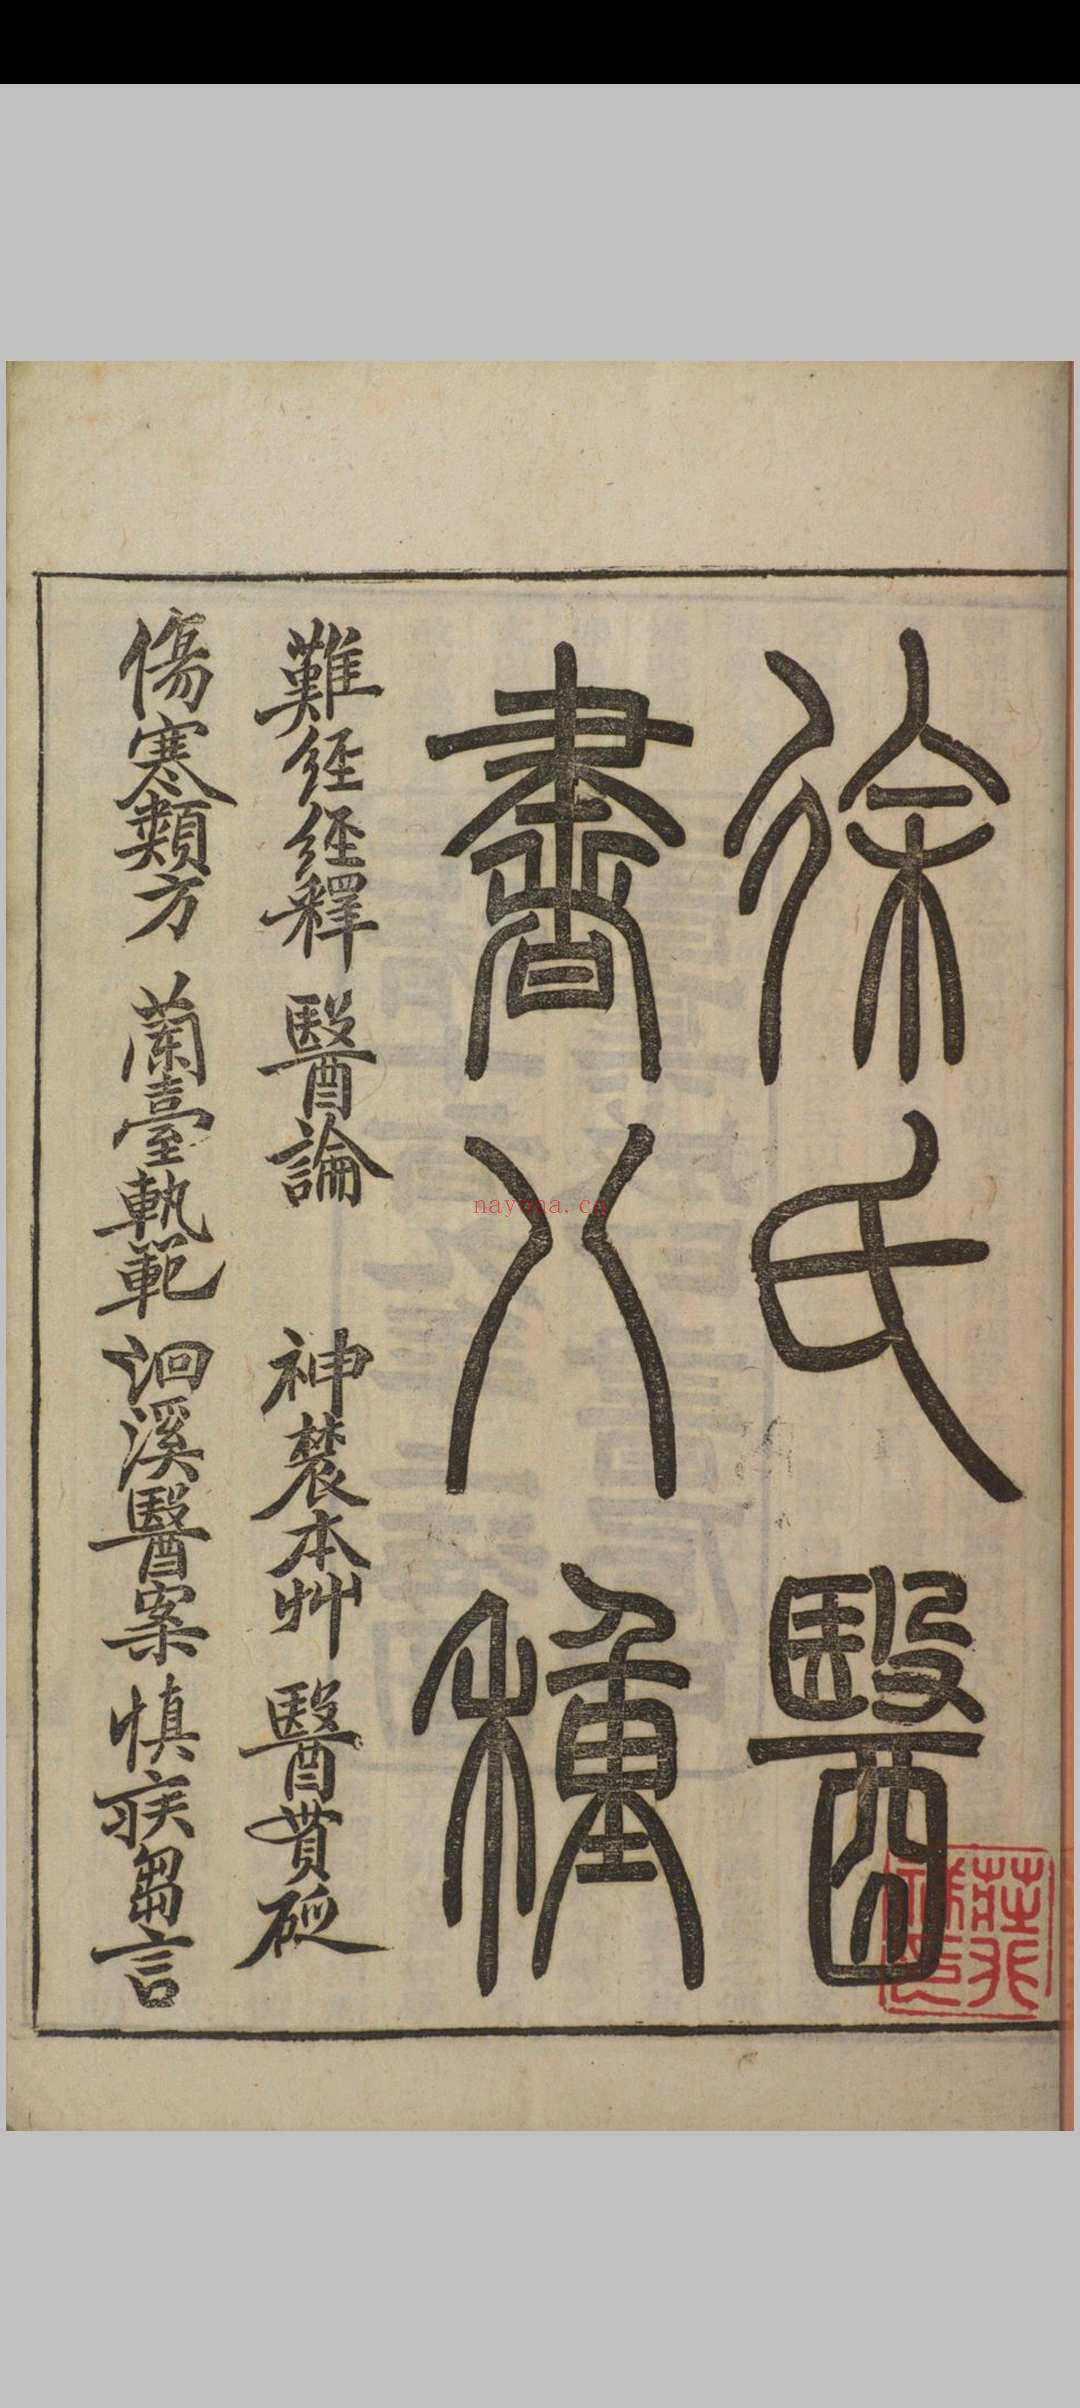 徐氏醫
書八種
難經經釋 醫論 神農本艸 醫貫砭
傷寒類方 蘭臺軌範 洄溪醫案 慎疾芻言
nayona.cn